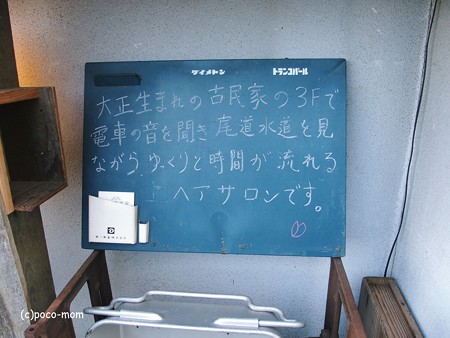 ダイメトン トランスパール
大正生まれの古民家の3Fで
電車の音を聞き尾道水道を見
ながら、ゆっくりと時間が流れる
ヘアサロンです。
(c)poco-mom